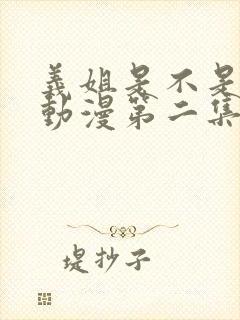 義姐是不是
動漫第二集
堤抄子